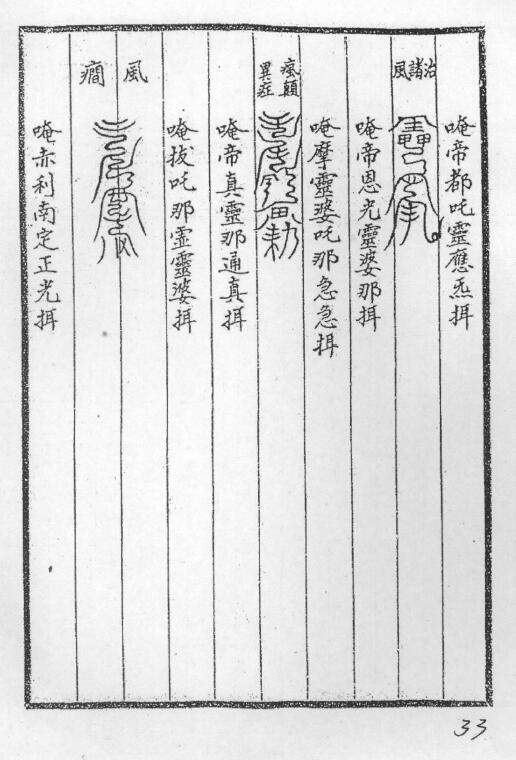 唵帝都吒靈應炁揖
治諸風
唵帝恩光靈婆那揖
唵摩靈婆吒那急急揖
瘋顛異症
唵帝真靈那通真揖
唵拔吒那霊靈婆揖
風癇
唵赤利南定正光揖
33